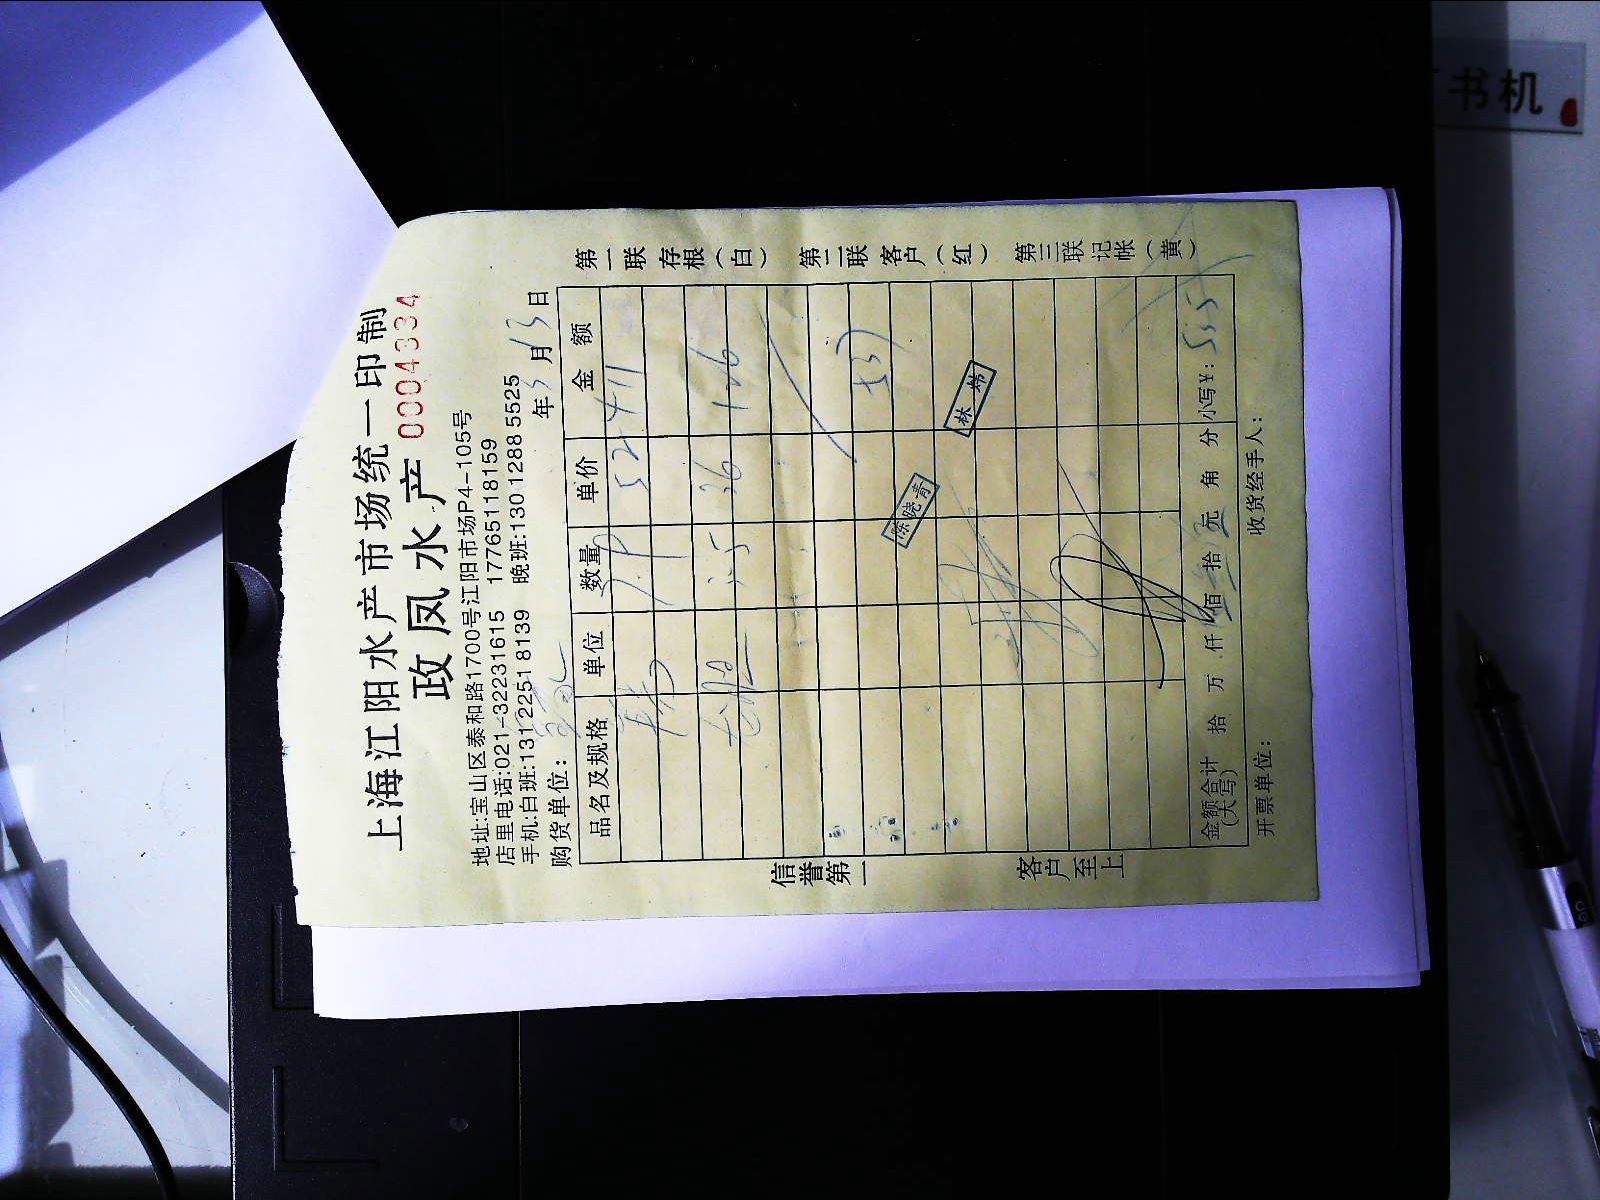 上海江阳水产市场统一印制
政凤水产 0004334
地址:宝山区泰和路1700号江阳市场P4-105号
店里电话:021-32231615 17765118159
手机:白班:131 2251 8139 晚班:130 1288 5525
购货单位: 年3月13日
品名及规格 单位 数量 单价 金额
52 411
3.5 36 126
537
陈晓青
林炜
金额合计(大写) 拾 万 仟 佰 拾 元 角 分 小写¥:
开票单位: 收货经手人:
第一联存根(白) 第二联客户(红) 第三联记帐(黄)
信誉第一 客户至上
书机